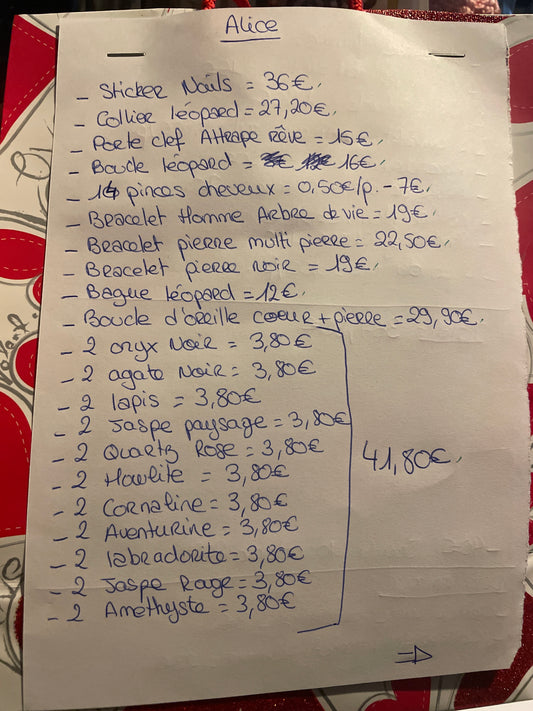 Alice
- Sticker Nails = 36€.
- Collier léopard = 27,20€.
- Porte clef Attrape rêve = 15€
- Boucle léopard = 16€.
- 14 pinces cheveux = 0,50€/p. - 7€.
- Bracelet Homme Arbre de vie = 19€.
- Bracelet pierre multi pierre = 22,50€.
- Bracelet pierre noir = 19€.
- Bague léopard = 12€.
- Boucle d'oreille coeur + pierre = 29,90€.
- 2 onyx Noir = 3,80€
- 2 agate Noir = 3,80€
- 2 lapis = 3,80€
- 2 Jaspe paysage = 3,80€
- 2 Quartz Rose = 3,80€
41,80€.
- 2 Howlite = 3,80€
- 2 Cornaline = 3,80€
- 2 Aventurine = 3,80€
- 2 labradorite = 3,80€
- 2 Jaspe Rage = 3,80€
- 2 Améthyste = 3,80€
⇒